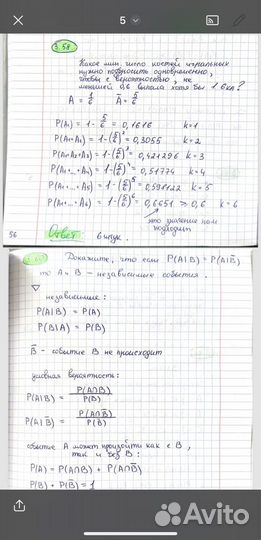 5
3.58
Какое мин. число костей игральных
нужно подбросить одновременно,
чтобы с вероятностью, не
меньшей 0,6 выпала хотя бы 1 6ка?
A = 1/6 Ā = 5/6
P(A₁) = 1 - 5/6 = 0,1616 k=1
P(A₁+A₂) = 1-(5/6)² = 0,3055 k = 2
P(A₁+A₂+A₃) = 1-(5/6)³ = 0,421296 k = 3
P(A₁+...+A₄) = 1-(5/6)⁴ = 0,51774 k = 4
P(A₁+...+A₅) = 1-(5/6)⁵ = 0,598122 k = 5
P(A₁+...+A₆) = 1-(5/6)⁶ = 0,6651 ≥ 0,6 k = 6
это значение нам
подходит
56 Ответ: 6 штук.
Докажите, что если P(A|B) = P(A|B̄)
то A и B – независимые события.
▽ независимые:
P(A|B) = P(A)
P(B|A) = P(B)
B̄ - событие B не происходит
условная вероятность:
P(A|B) = P(A∩B) / P(B)
P(A|B̄) = P(A∩B̄) / P(B̄)
событие A может произойти как с B,
так и без B:
P(A) = P(A∩B) + P(A∩B̄)
P(B) + P(B̄) = 1
Avito